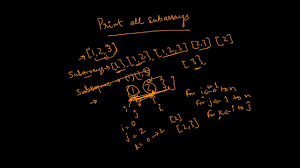 Print all Subarrays
→ [1,2,3]
Subarrays → [1], [1,2], [1,2,3] [2,3] [2]
[3]
→ [1, 2, 3]
i j
i = 0
j = 2
k = 0 → 2
[2]
[2,3]
for i ← 0 to n
for j ← i to n
for k ← i to j